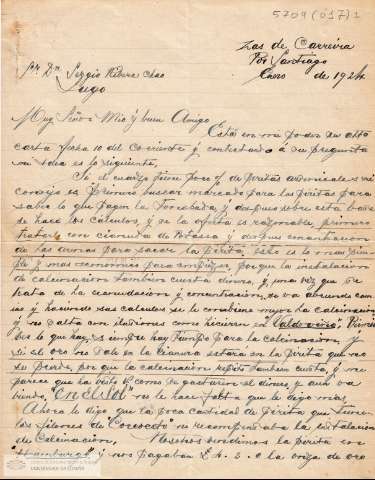 5709 (017) 1
Zas de Carreira
Por Santiago
Enero de 1924
Sr. Dn. Sergio Ribera Chao
Lugo
Muy Señor Mio y buen Amigo
Está en mi poder su atta
carta fecha 10 del Corriente y contestando á su pregunta
es lo siguiente,
Si el cuarzo tiene poco % de piritas arsenicales mi
consejo es Primero buscar mercado para las piritas para
saber lo que pagan la Tonelada, y despues sobre esta base
se hace los calculos, y se la oferta es razonable, primero
tratar con cianuro de Potassa y despues concentracion
de las arenas para sacar la pirita, Esto es lo mas sim-
ple y mas economico para empezar, porque la instalacion
de calcinacion tambien cuesta dinero, y una vez que se
trata de la cianuracion y concentracion,
y haciendo sus calculos se le conbiene mejor la calcinacion
y no salta con ilusiones como hicieron en Valdoviño, Primero
ber lo que hay, siempre hay tiempo para la calcinacion, y
si el oro no sale en la cianura estará en la pirita que no
se pierde, por que la calcinacion repito tambien cuesta, y me
parece que ha visto como se gastaron el dinero, y aun va
biendo, no le hace falta que le diga mas,
Ahora le digo que la poca cantidad de Pirita que tiene
los filones de Corcoesto no recompensaba la instalacion
de Calcinacion, Nosotros vendimos la pirita en
"Hamburgo" y nos pagaban £ 4. 2. 0 la onza de oro